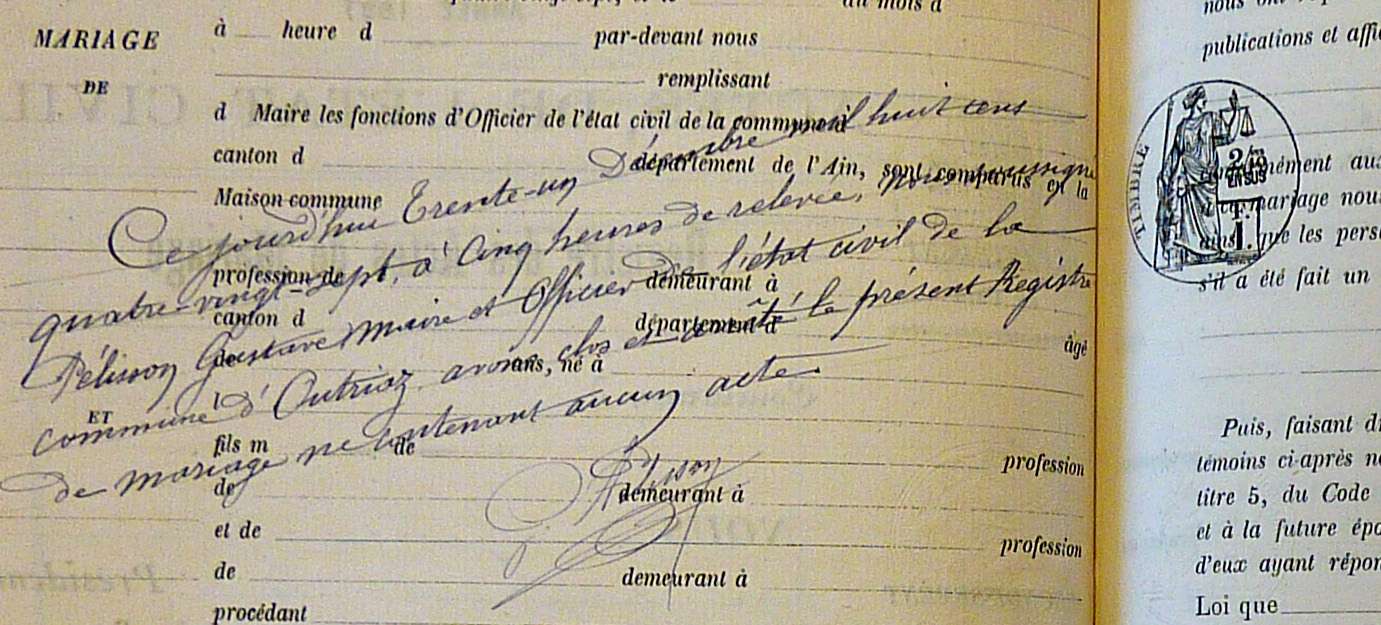 MARIAGE
DE
ET
à heure d par-devant nous
remplissant
d Maire les fonctions d'Officier de l'état civil de la commune d
canton d département de l'Ain, sont comparus en la
Maison commune
profession de demeurant à
canton d département d
âgé
de ans, né à
l
fils m de profession
de demeurant à
et de profession
de demeurant à
procédant
Ce jourd'hui Trente-un Décembre mil huit cens
quatre-vingt-sept, à Cinq heures de relevée, nous soussigné
Pélisson Gustave Maire et Officier de l'état civil de la
commune d'Outriaz avons clos et arrêté le présent Registre
de mariage ne contenant aucun acte
Pélisson
TIMBRE
publications et affi
mariage nous
que les pers
s'il a été fait un
Puis, faisant d
témoins ci-après n
titre 5, du Code
et à la future épo
d'eux ayant répon
Loi que